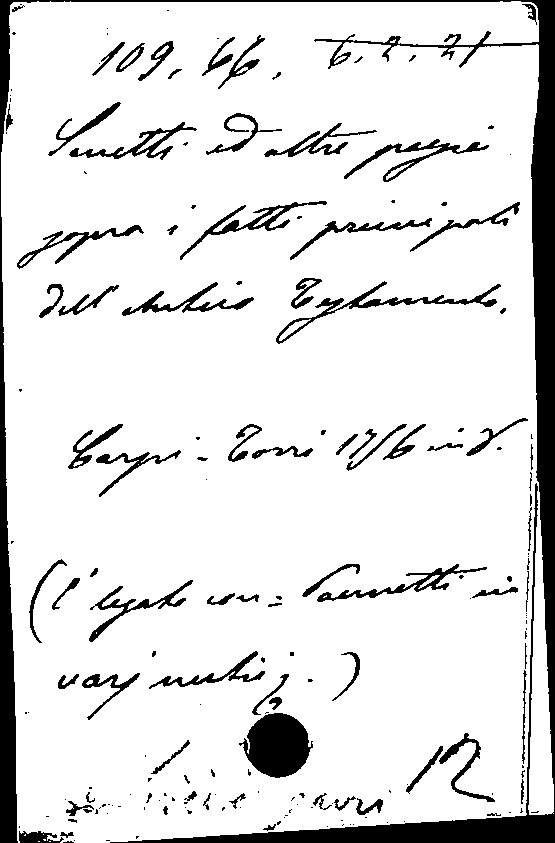 109. 66. 6. 2. 21
Sonetti ed altre poesie
sopra i fatti principali
dell'Antico Testamento.
Carpi - Torri 1756 in 8.
(È legato con = Vannetti in
varj metri.)
12